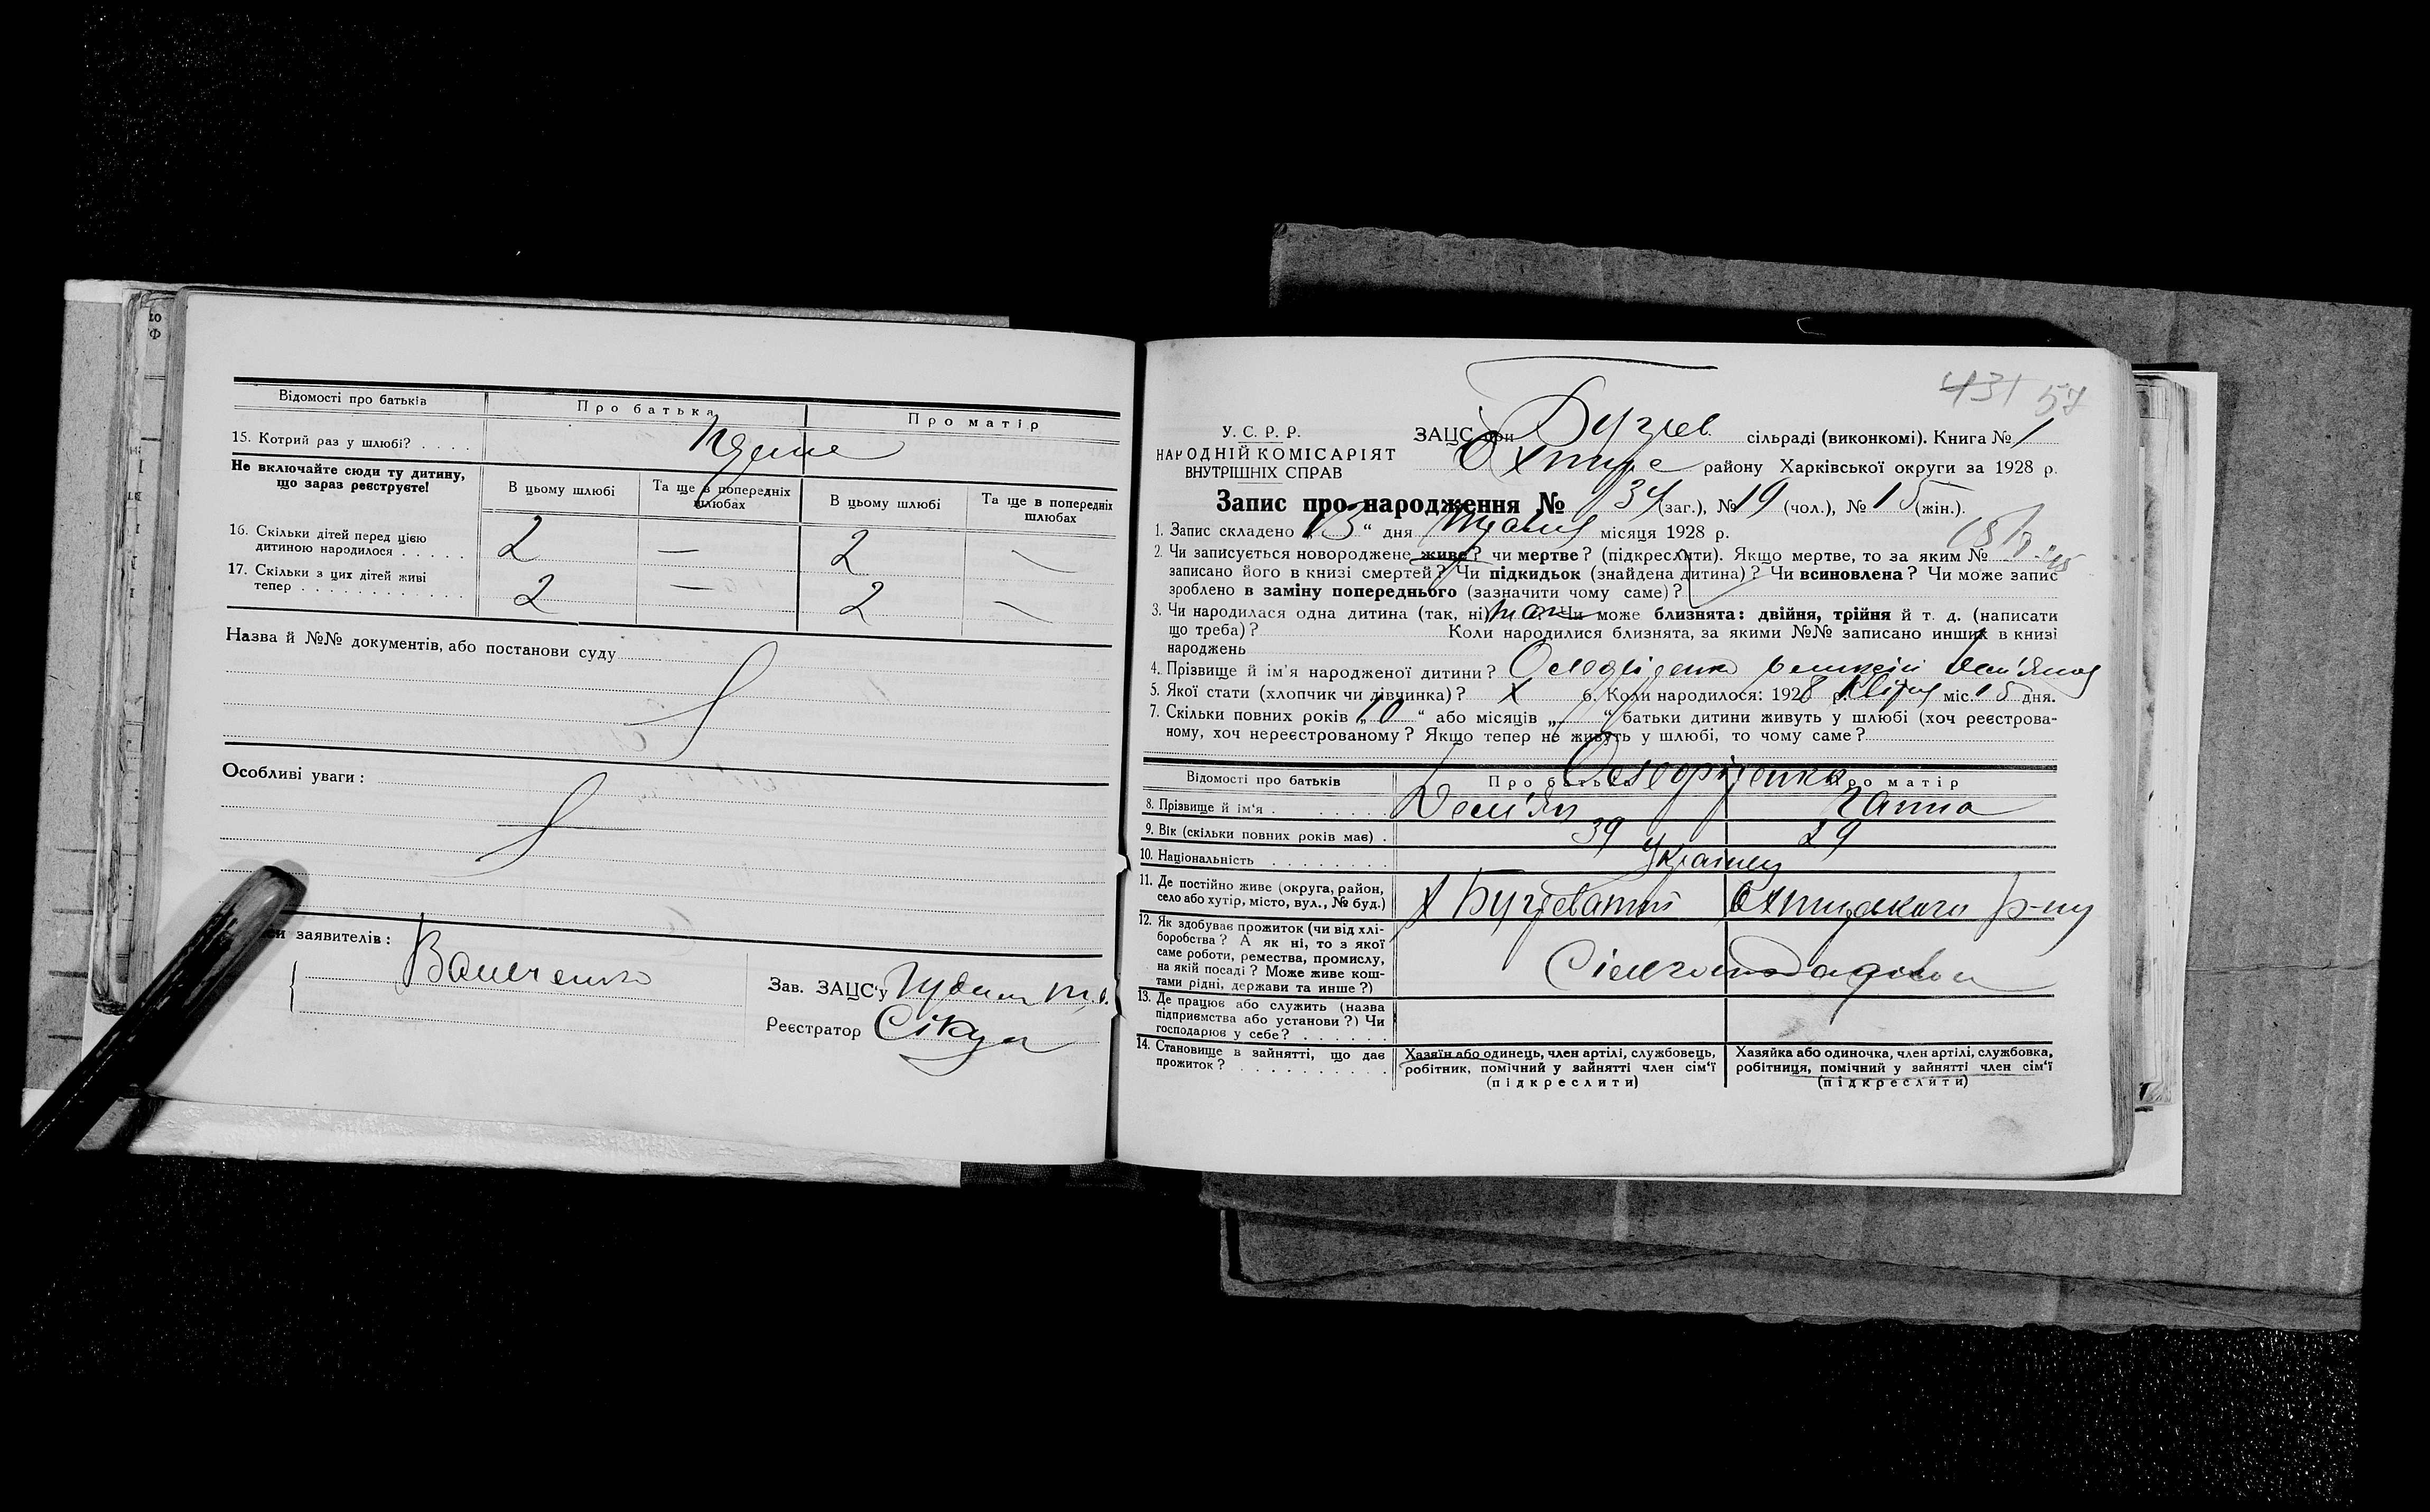 Відомості про батьків
Про батька
Про матір
15. Котрий раз у шлюбі? . . . .
Не включайте сюди ту дитину,
що зараз реєструєте!
В цьому шлюбі
Та ще в попередніх
шлюбах
В цьому шлюбі
Та ще в попередніх
шлюбах
16. Скільки дітей перед цією
дитиною народилося . . . . .
2 — 2 —
17. Скільки з цих дітей живі
тепер . . . . . . . . . . . .
2 — 2 —
Назва й №№ документів, або постанови суду
Особливі уваги:
заявителів:
Зав. ЗАЦС'у
Реєстратор
431 57
У. С. Р. Р.
НАРОДНІЙ КОМІСАРІЯТ
ВНУТРІШНІХ СПРАВ
ЗАЦС при Бугрев. сільраді (виконкомі). Книга № 1
Охтирс району Харківської округи за 1928 р.
Запис про народження № 34 (заг.), № 19 (чол.), № 15 (жін.).
1. Запис складено „13“ дня Травня місяця 1928 р.
2. Чи записується новороджене живе? чи мертве? (підкреслити). Якщо мертве, то за яким №
записано його в книзі смертей? Чи підкидьок (знайдена дитина)? Чи всиновлена? Чи може запис
зроблено в заміну попереднього (зазначити чому саме)?
3. Чи народилася одна дитина (так, ні) так Чи може близнята: двійня, трійня й т. д. (написати
що треба)? Коли народилися близнята, за якими №№ записано инших в книзі
народжень
4. Прізвище й ім'я народженої дитини? Дем'янов
5. Якої стати (хлопчик чи дівчинка)? Х 6. Коли народилося: 1928 р. Квітня міс. 15 дня.
7. Скільки повних років „10“ або місяців „ “ батьки дитини живуть у шлюбі (хоч реєстрова-
ному, хоч нереєстрованому? Якщо тепер не живуть у шлюбі, то чому саме?
Відомості про батьків
Про батька
Про матір
8. Прізвище й ім'я . . . . . . Дем'ян Ганна
9. Вік (скільки повних років має) . 39 29
10. Національність . . . . . . . . Українец
11. Де постійно живе (округа, район,
село або хутір, місто, вул., № буд.)
Х Бугреватий Охтирського р-ну
12. Як здобуває прожиток (чи від хлі-
боробства? А як ні, то з якої
саме роботи, ремества, промислу,
на якій посаді? Може живе кош-
тами рідні, держави та инше?)
13. Де працює або служить (назва
підприємства або установи?) Чи
господарює у себе? . . . . . .
14. Становище в зайнятті, що дає
прожиток? . . . . . . . . . .
Хазяїн або одинець, член артілі, службовець,
робітник, помічний у зайнятті член сім'ї
(підкреслити)
Хазяйка або одиночка, член артілі, службовка,
робітниця, помічний у зайнятті член сім'ї
(підкреслити)